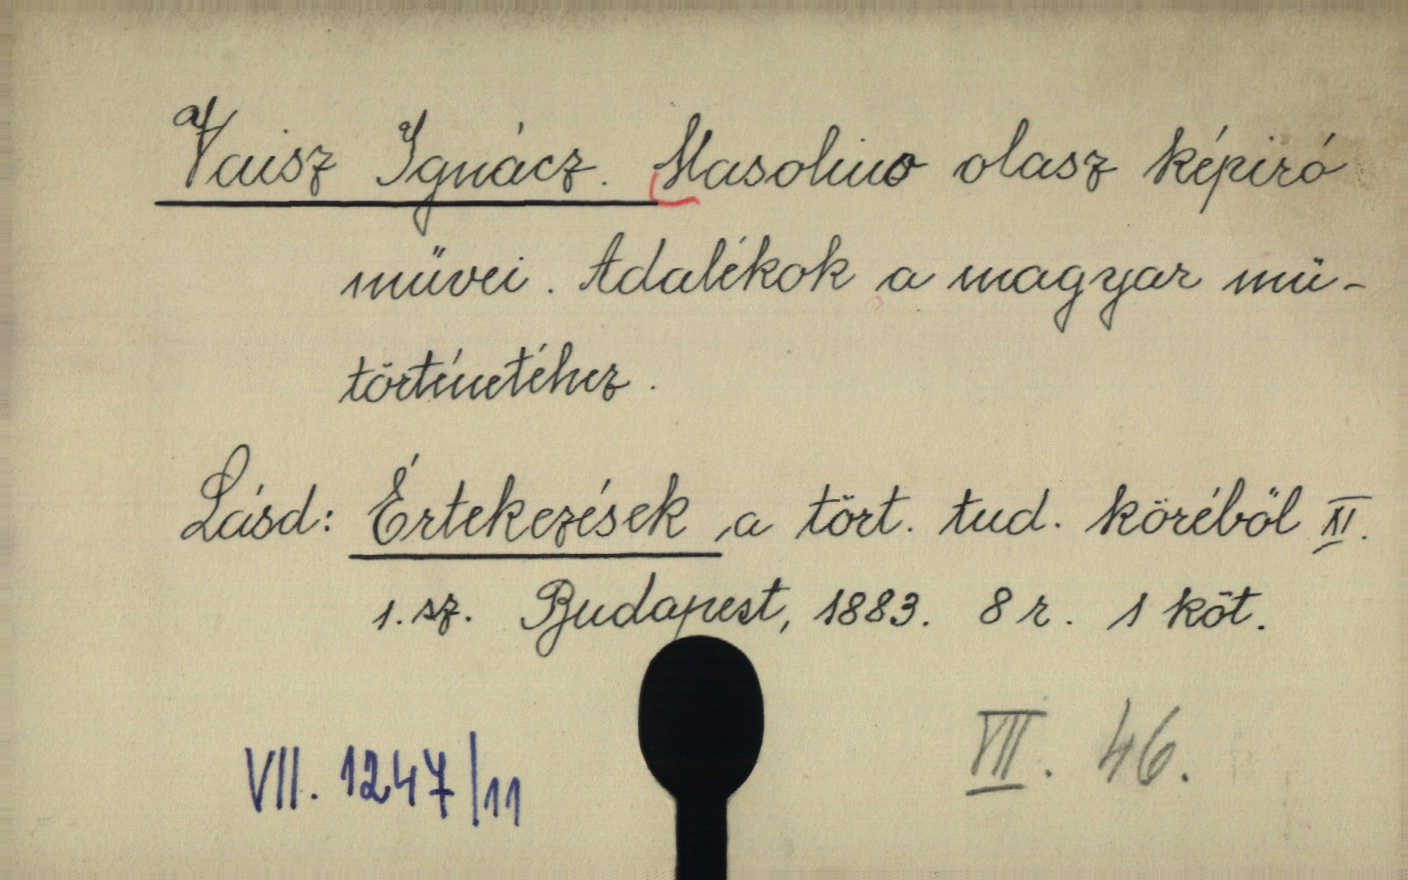 Vaisz Ignácz. Masolino olasz képiró
művei. Adalékok a magyar mű-
történetéhez.
Lásd: Értekezések a tört. tud. köréből XI.
1. sz. Budapest, 1883. 8 r. 1 köt.
VII. 46.
VII. 1247/11